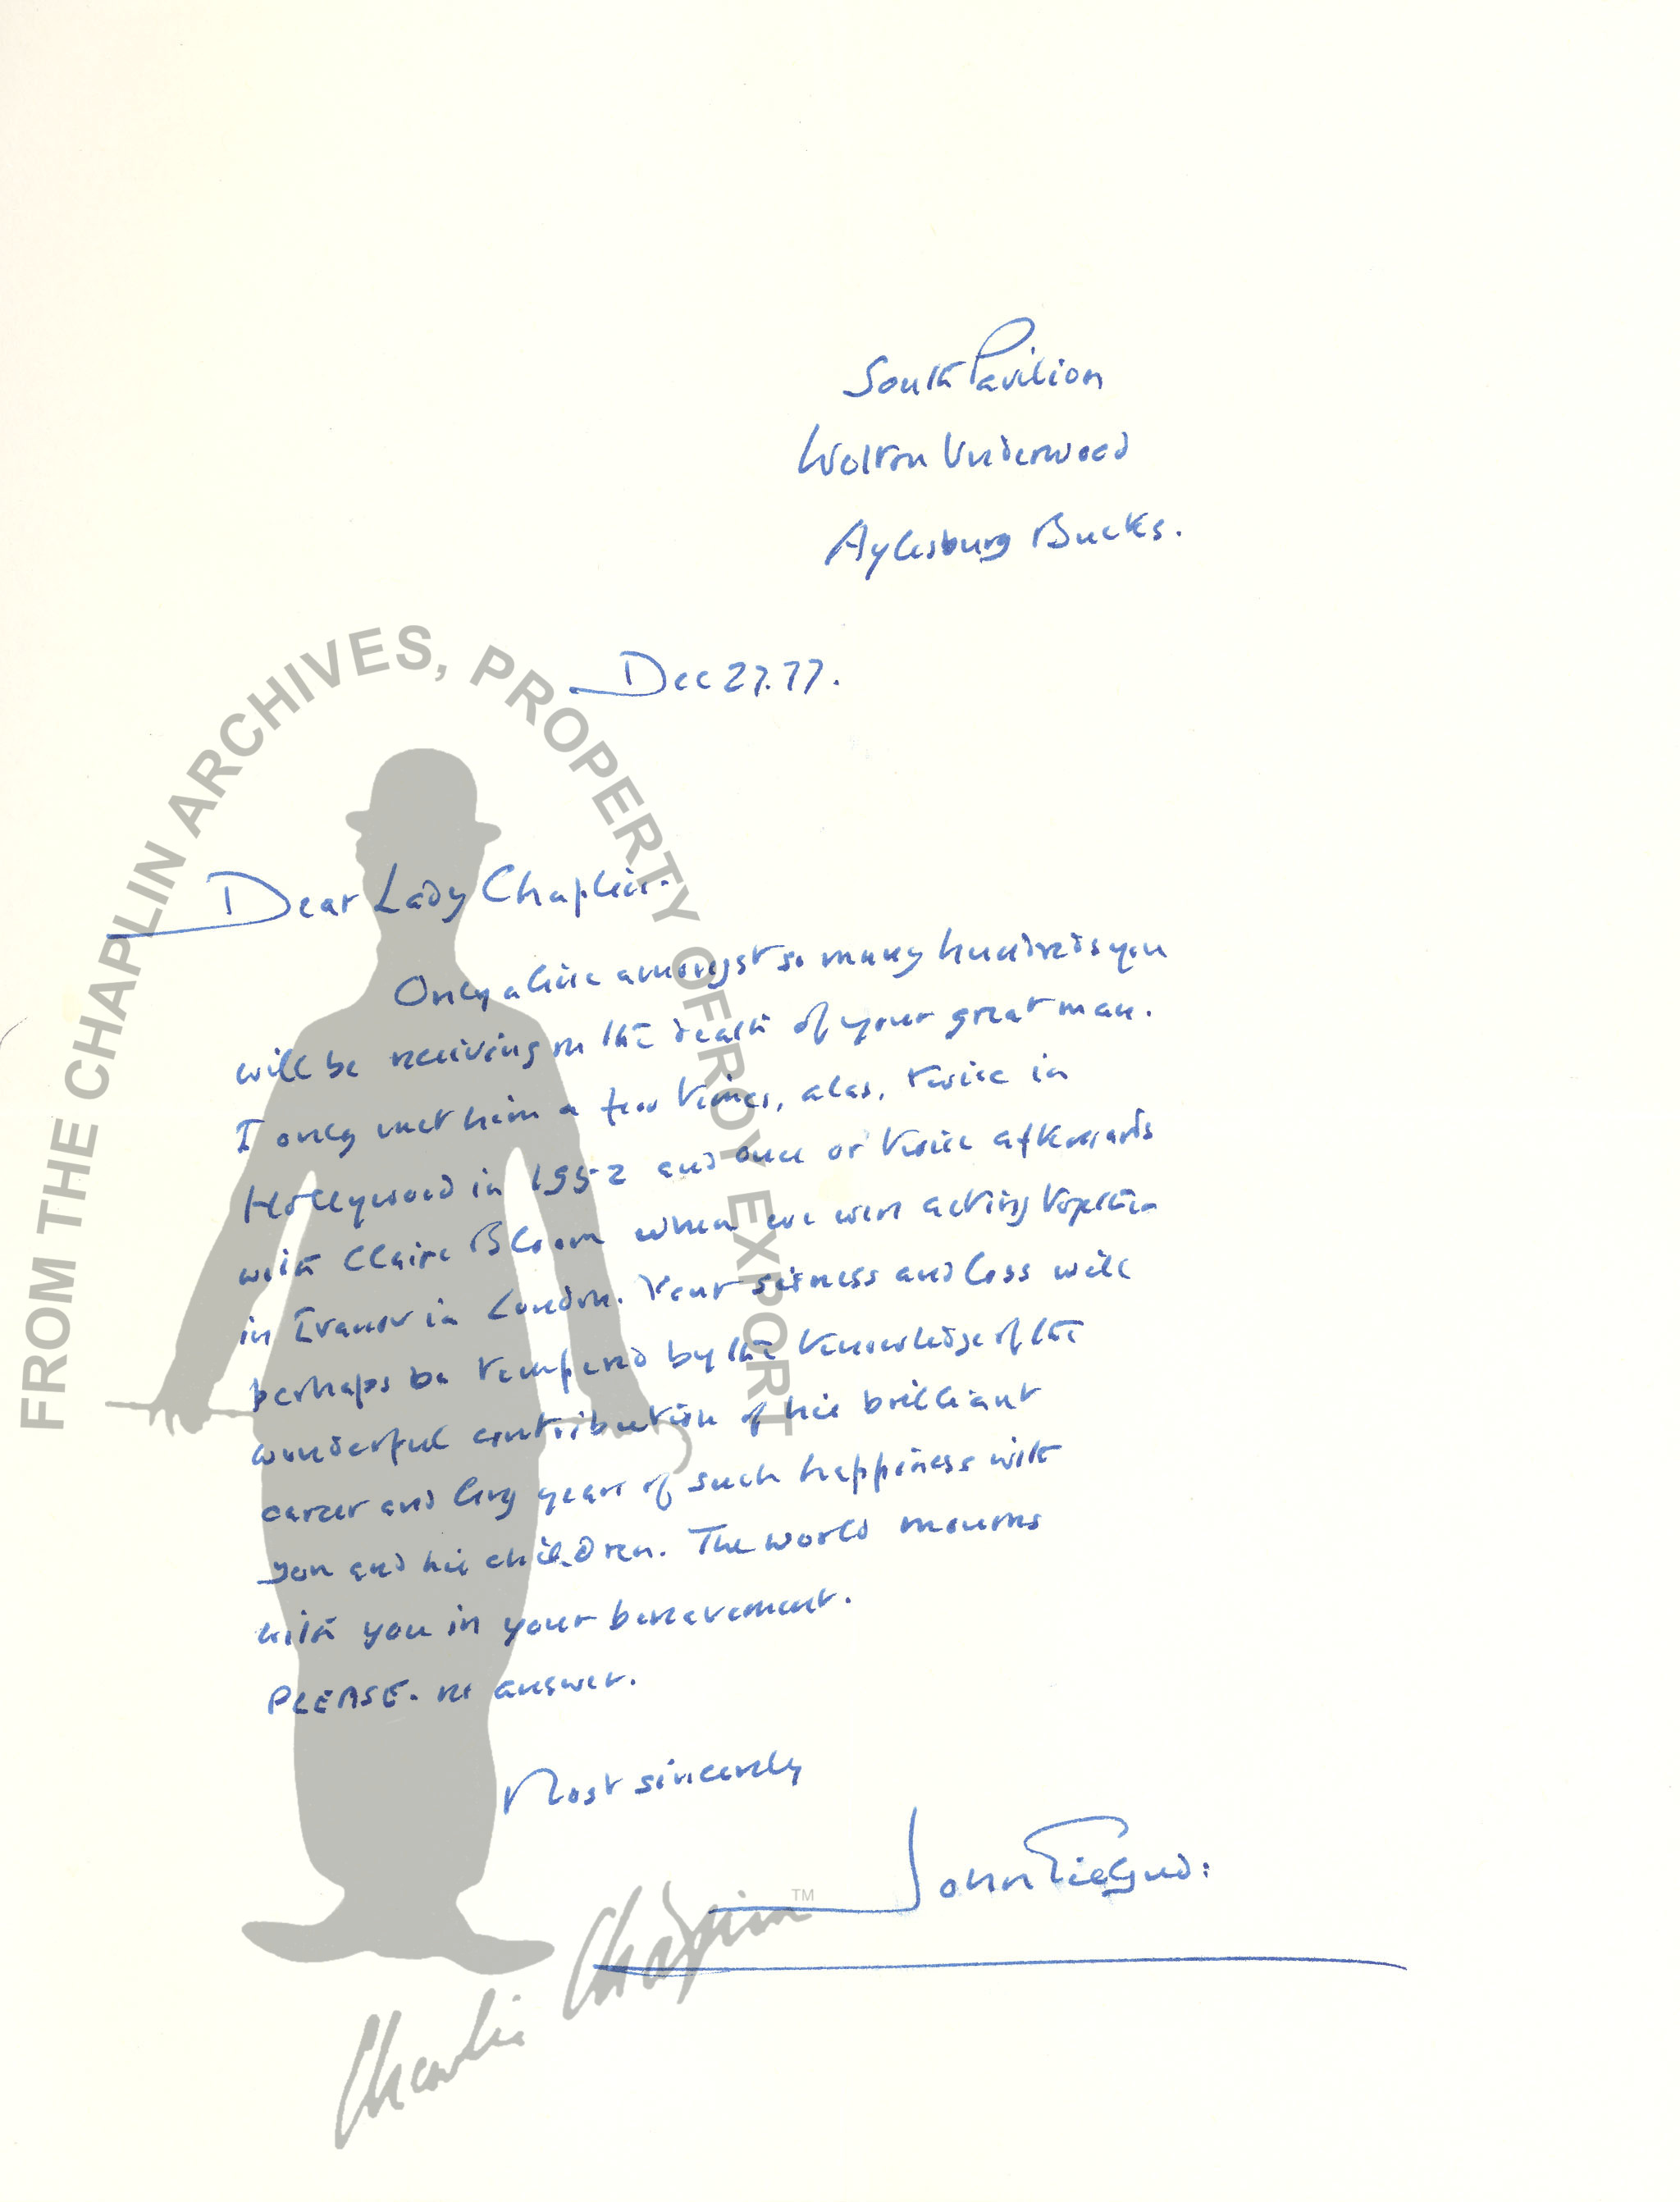 South Pavilion
Wotton Underwood
Aylesbury Bucks.
Dec 27. 77.
Dear Lady Chaplin.
Only a line amongst so many hundreds you
will be receiving on the death of your great man.
I only met him a few times, alas, twice in
Hollywood in 1952 and once or twice afterwards
with Claire Bloom when we were acting together
in Ivanov in London. Your sadness and loss will
perhaps be tempered by the knowledge of the
wonderful contribution of his brilliant
career and long years of such happiness with
you and his children. The world mourns
with you in your bereavement.
PLEASE. no answer.
Most sincerely
John Gielgud.
FROM THE CHAPLIN ARCHIVES, PROPERTY OF ROY EXPORT
Charlie Chaplin™